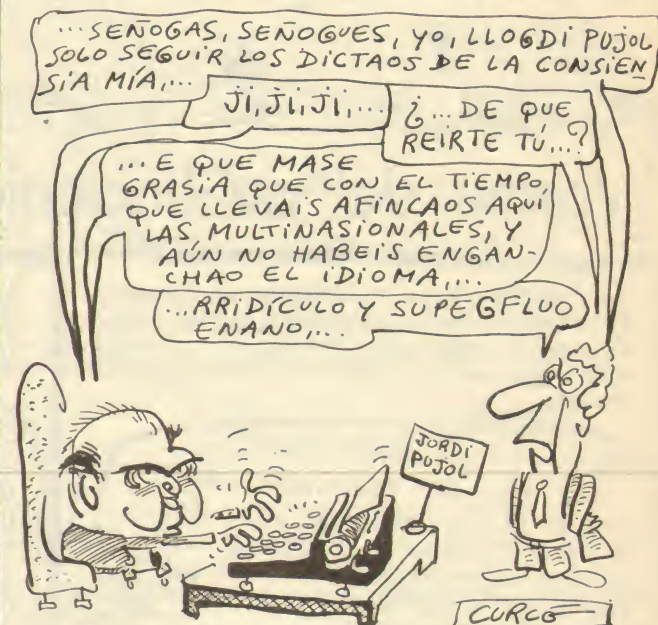 ...SEÑOGAS, SEÑOGUES, YO, LLOGDI PUJOL
SOLO SEGUIR LOS DICTAOS DE LA CONSIEN
SIA MÍA,...
JI, JI, JI,...
¿...DE QUE
REIRTE TÚ,...?
...E QUE MASE
GRASIA QUE CON EL TIEMPO,
QUE LLEVAIS AFINCAOS AQUÍ
LAS MULTINASIONALES, Y
AÚN NO HABEIS ENGAN-
CHAO EL IDIOMA,...
...RRIDÍCULO Y SUPEGFLUO
ENANO,...
JORDI
PUJOL
CURCÓ